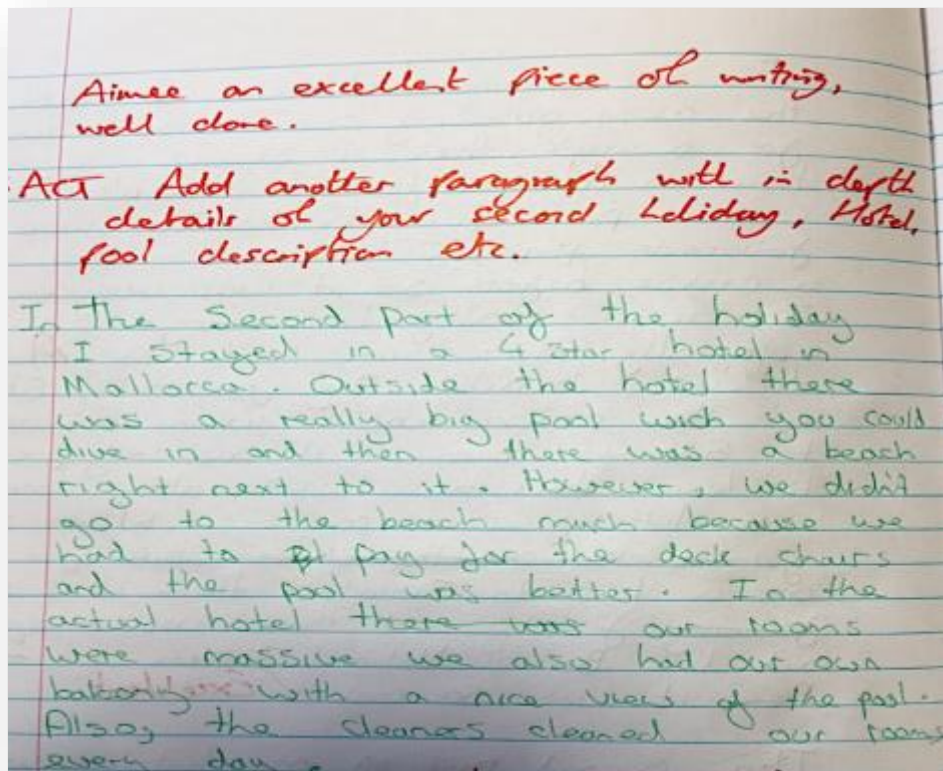 Aimee an excellent piece of writing,
well done.
ACT Add another paragraph with in depth
details of your second holiday, Hotel,
pool description etc.
In The Second part of the holiday
I stayed in a 4 star hotel in
Mallorca. Outside the hotel there
was a really big pool wich you could
dive in and then there was a beach
right next to it. However, we didn't
go to the beach much because we
had to pay for the deck chairs
and the pool was better. In the
actual hotel there was our rooms
were massive we also had our own
with a nice view of the pool.
Also, the cleaners cleaned our rooms
every day.